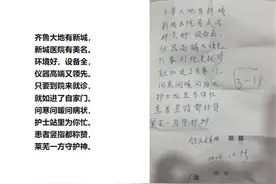 齐鲁大地有新城，
新城医院有美名，
环境好，设备全，
仪器高端又领先，
只要到院来就诊，
就如进了自家门，
问寒问暖问病状，
护士站里为你忙，
患者竖指都称赞，
莱芜一方守护神。
齐鲁大地有新城，
新城医院有美名，
环境好，设备全，
仪器高端又领先，
只要到院来就诊，
就如进了自家门，
问寒问暖问病状，
护士站里为你忙，
患者竖指都称赞，
莱芜一方守护神。
3-18